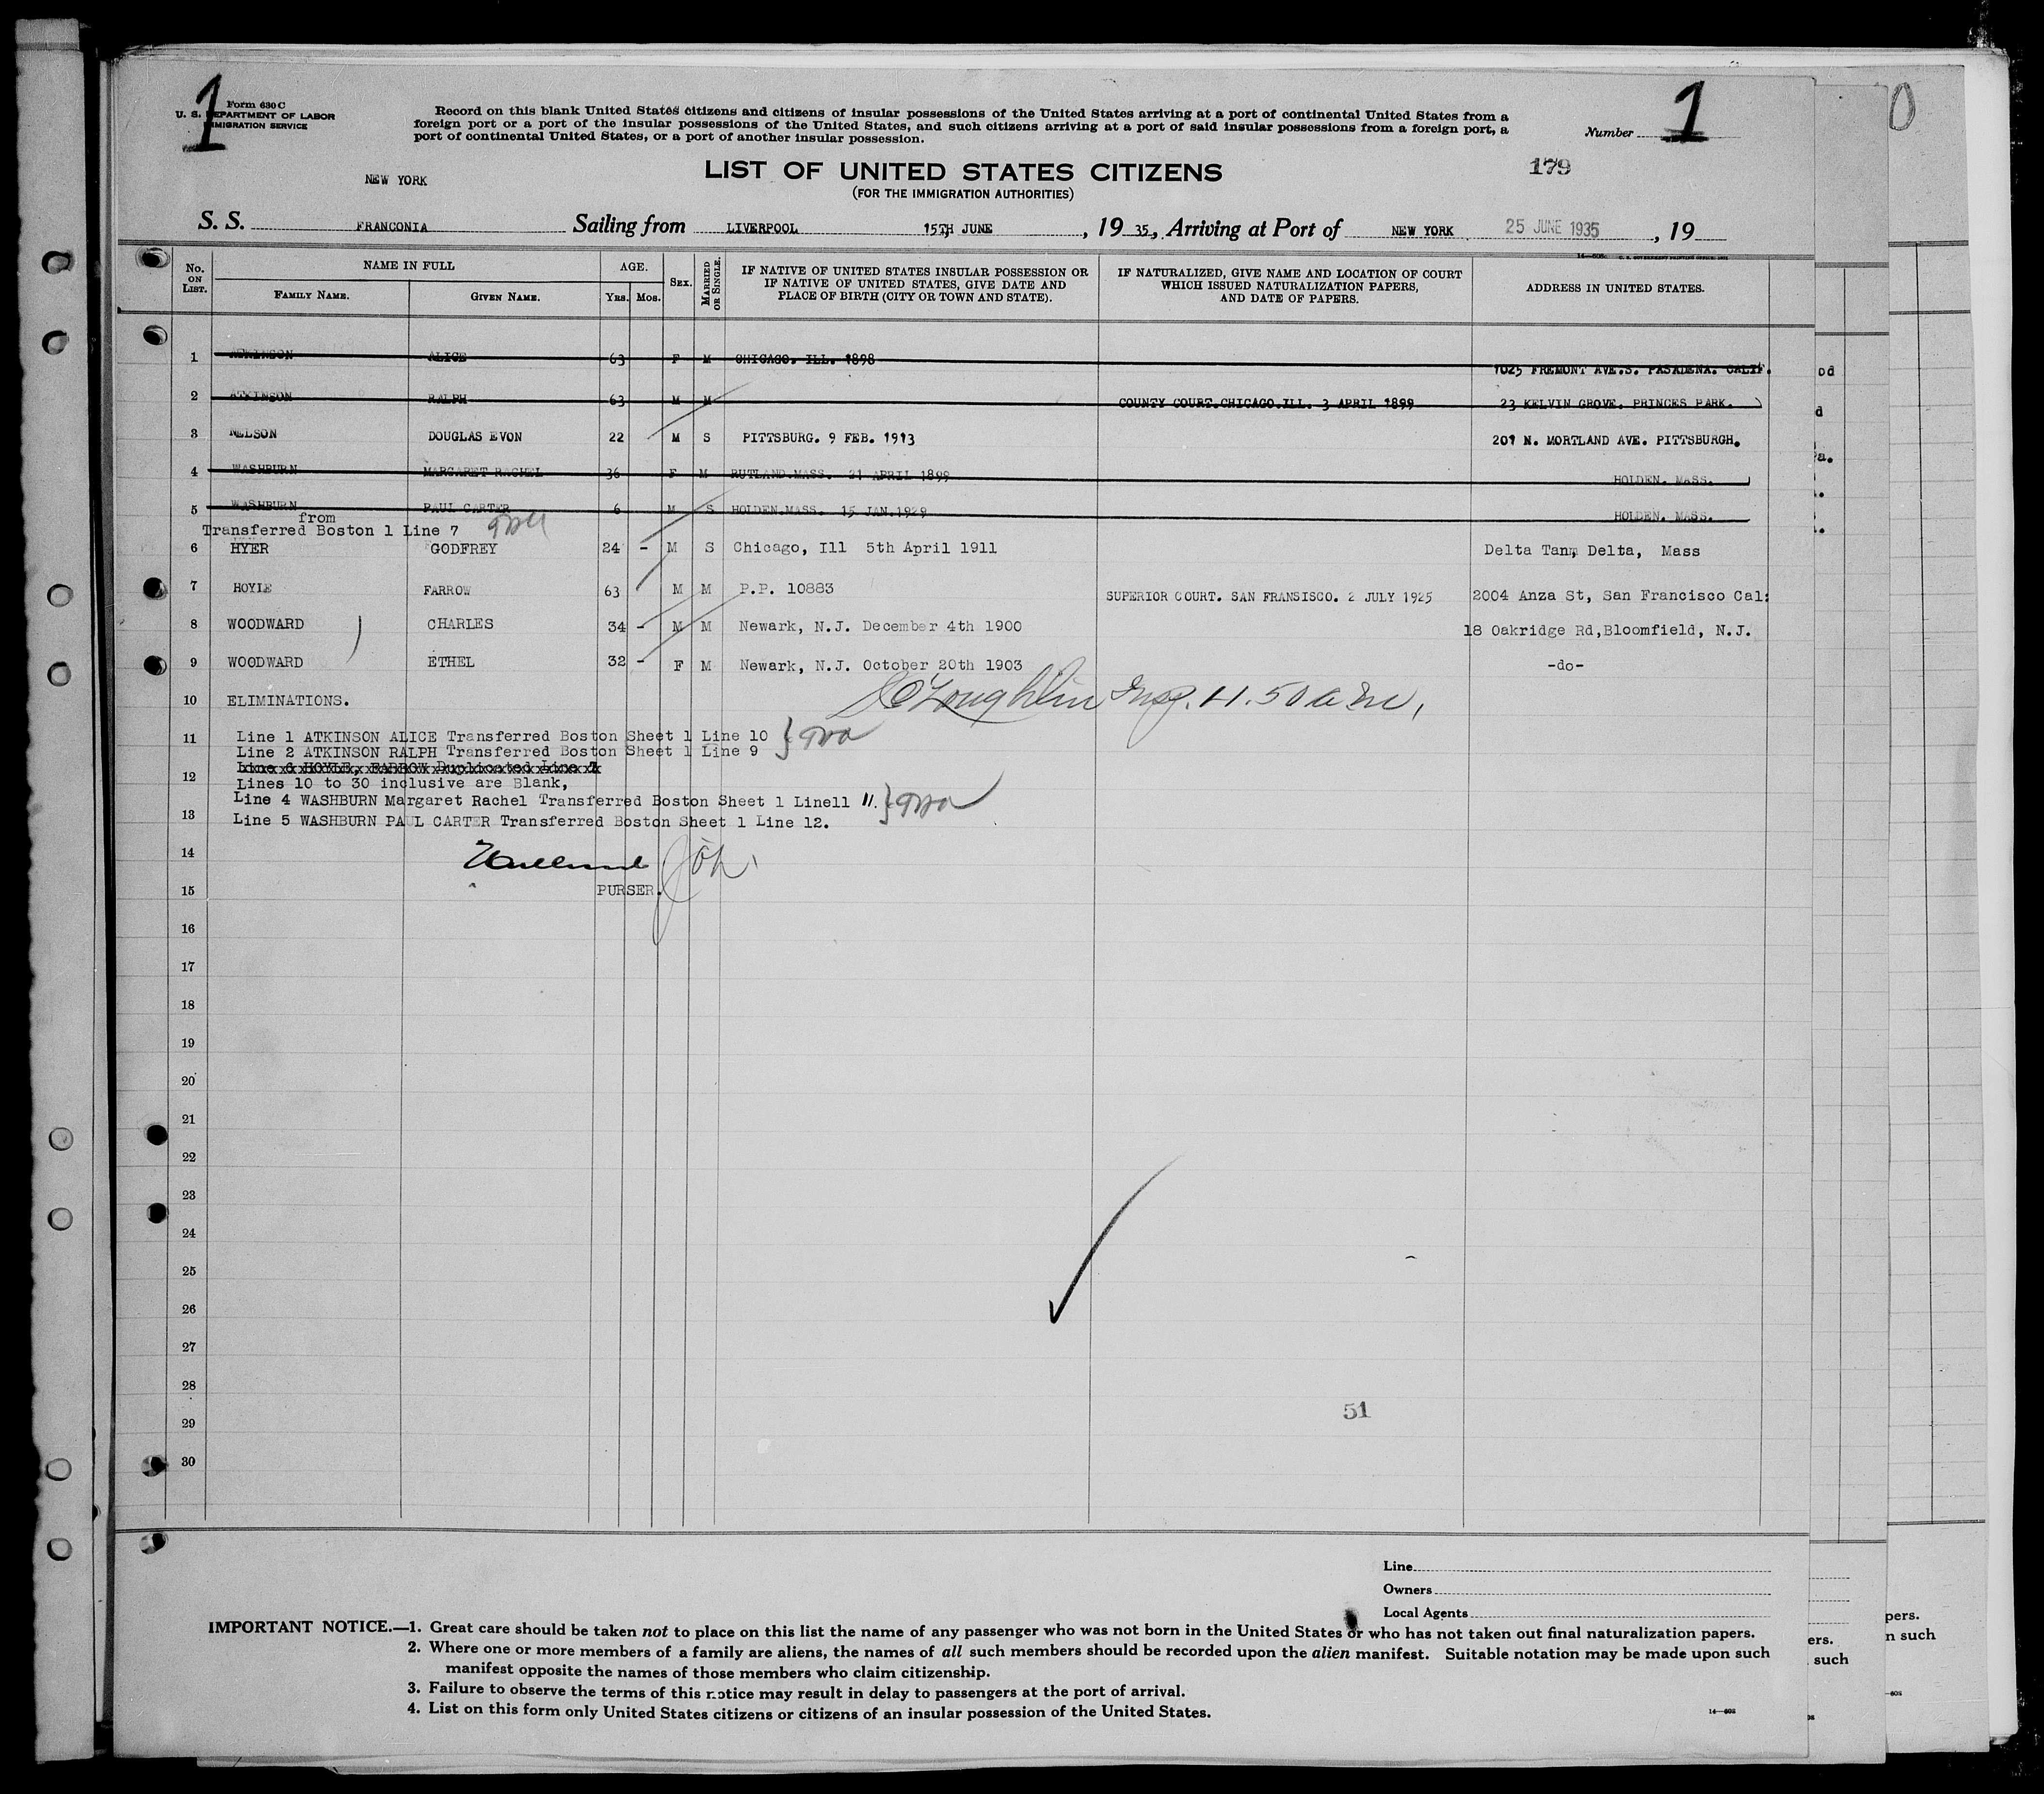 1
Form 630 C
U. S. DEPARTMENT OF LABOR
IMMIGRATION SERVICE
Record on this blank United States citizens and citizens of insular possessions of the United States arriving at a port of continental United States from a
foreign port or a port of the insular possessions of the United States, and such citizens arriving at a port of said insular possessions from a foreign port, a
port of continental United States, or a port of another insular possession.
Number 1
179
NEW YORK
LIST OF UNITED STATES CITIZENS
(FOR THE IMMIGRATION AUTHORITIES)
S. S. FRANCONIA Sailing from LIVERPOOL 15TH JUNE, 19 35, Arriving at Port of NEW YORK 25 JUNE 1935, 19
No. ON LIST.
NAME IN FULL
FAMILY NAME. GIVEN NAME.
AGE.
YRS. MOS.
SEX.
MARRIED OR SINGLE.
IF NATIVE OF UNITED STATES INSULAR POSSESSION OR
IF NATIVE OF UNITED STATES, GIVE DATE AND
PLACE OF BIRTH (CITY OR TOWN AND STATE).
IF NATURALIZED, GIVE NAME AND LOCATION OF COURT
WHICH ISSUED NATURALIZATION PAPERS,
AND DATE OF PAPERS.
ADDRESS IN UNITED STATES.
1 ATKINSON ALICE 63 F M CHICAGO. ILL. 1898 1025 FREMONT AVE.S. PASADENA. CALIF.
2 ATKINSON RALPH 63 M M COUNTY COURT.CHICAGO.ILL. 3 APRIL 1899 23 KELVIN GROVE. PRINCES PARK.
3 NELSON DOUGLAS EVON 22 M S PITTSBURG. 9 FEB. 1913 201 N. MORTLAND AVE. PITTSBURGH.
4 WASHBURN MARGARET RACHEL 36 F M RUTLAND.MASS. 21 APRIL 1899 HOLDEN. MASS.
5 WASHBURN PAUL CARTER 6 M S HOLDEN.MASS. 15 JAN.1929 HOLDEN. MASS.
from
Transferred Boston 1 Line 7
6 HYER GODFREY 24 - M S Chicago, Ill 5th April 1911 Delta Tann, Delta, Mass
7 HOYLE FARROW 63 M M P.P. 10883 SUPERIOR COURT. SAN FRANSISCO. 2 JULY 1925 2004 Anza St, San Francisco Cal:
8 WOODWARD CHARLES 34 - M M Newark, N.J. December 4th 1900 18 Oakridge Rd,Bloomfield, N.J.
9 WOODWARD ETHEL 32 - F M Newark, N.J. October 20th 1903 -do-
10 ELIMINATIONS. O'Loughlin Insp. 11.50 am,
11 Line 1 ATKINSON ALICE Transferred Boston Sheet 1 Line 10
Line 2 ATKINSON RALPH Transferred Boston Sheet 1 Line 9
Line 6 HOYLE, FARROW Duplicated Line 7
12 Lines 10 to 30 inclusive are Blank,
Line 4 WASHBURN Margaret Rachel Transferred Boston Sheet 1 Line11 11.
13 Line 5 WASHBURN PAUL CARTER Transferred Boston Sheet 1 Line 12.
14
15 PURSER.
16
17
18
19
20
21
22
23
24
25
26
27
28
29 51
30
Line
Owners
Local Agents
IMPORTANT NOTICE.—1. Great care should be taken not to place on this list the name of any passenger who was not born in the United States or who has not taken out final naturalization papers.
2. Where one or more members of a family are aliens, the names of all such members should be recorded upon the alien manifest. Suitable notation may be made upon such
manifest opposite the names of those members who claim citizenship.
3. Failure to observe the terms of this notice may result in delay to passengers at the port of arrival.
4. List on this form only United States citizens or citizens of an insular possession of the United States.
14—608